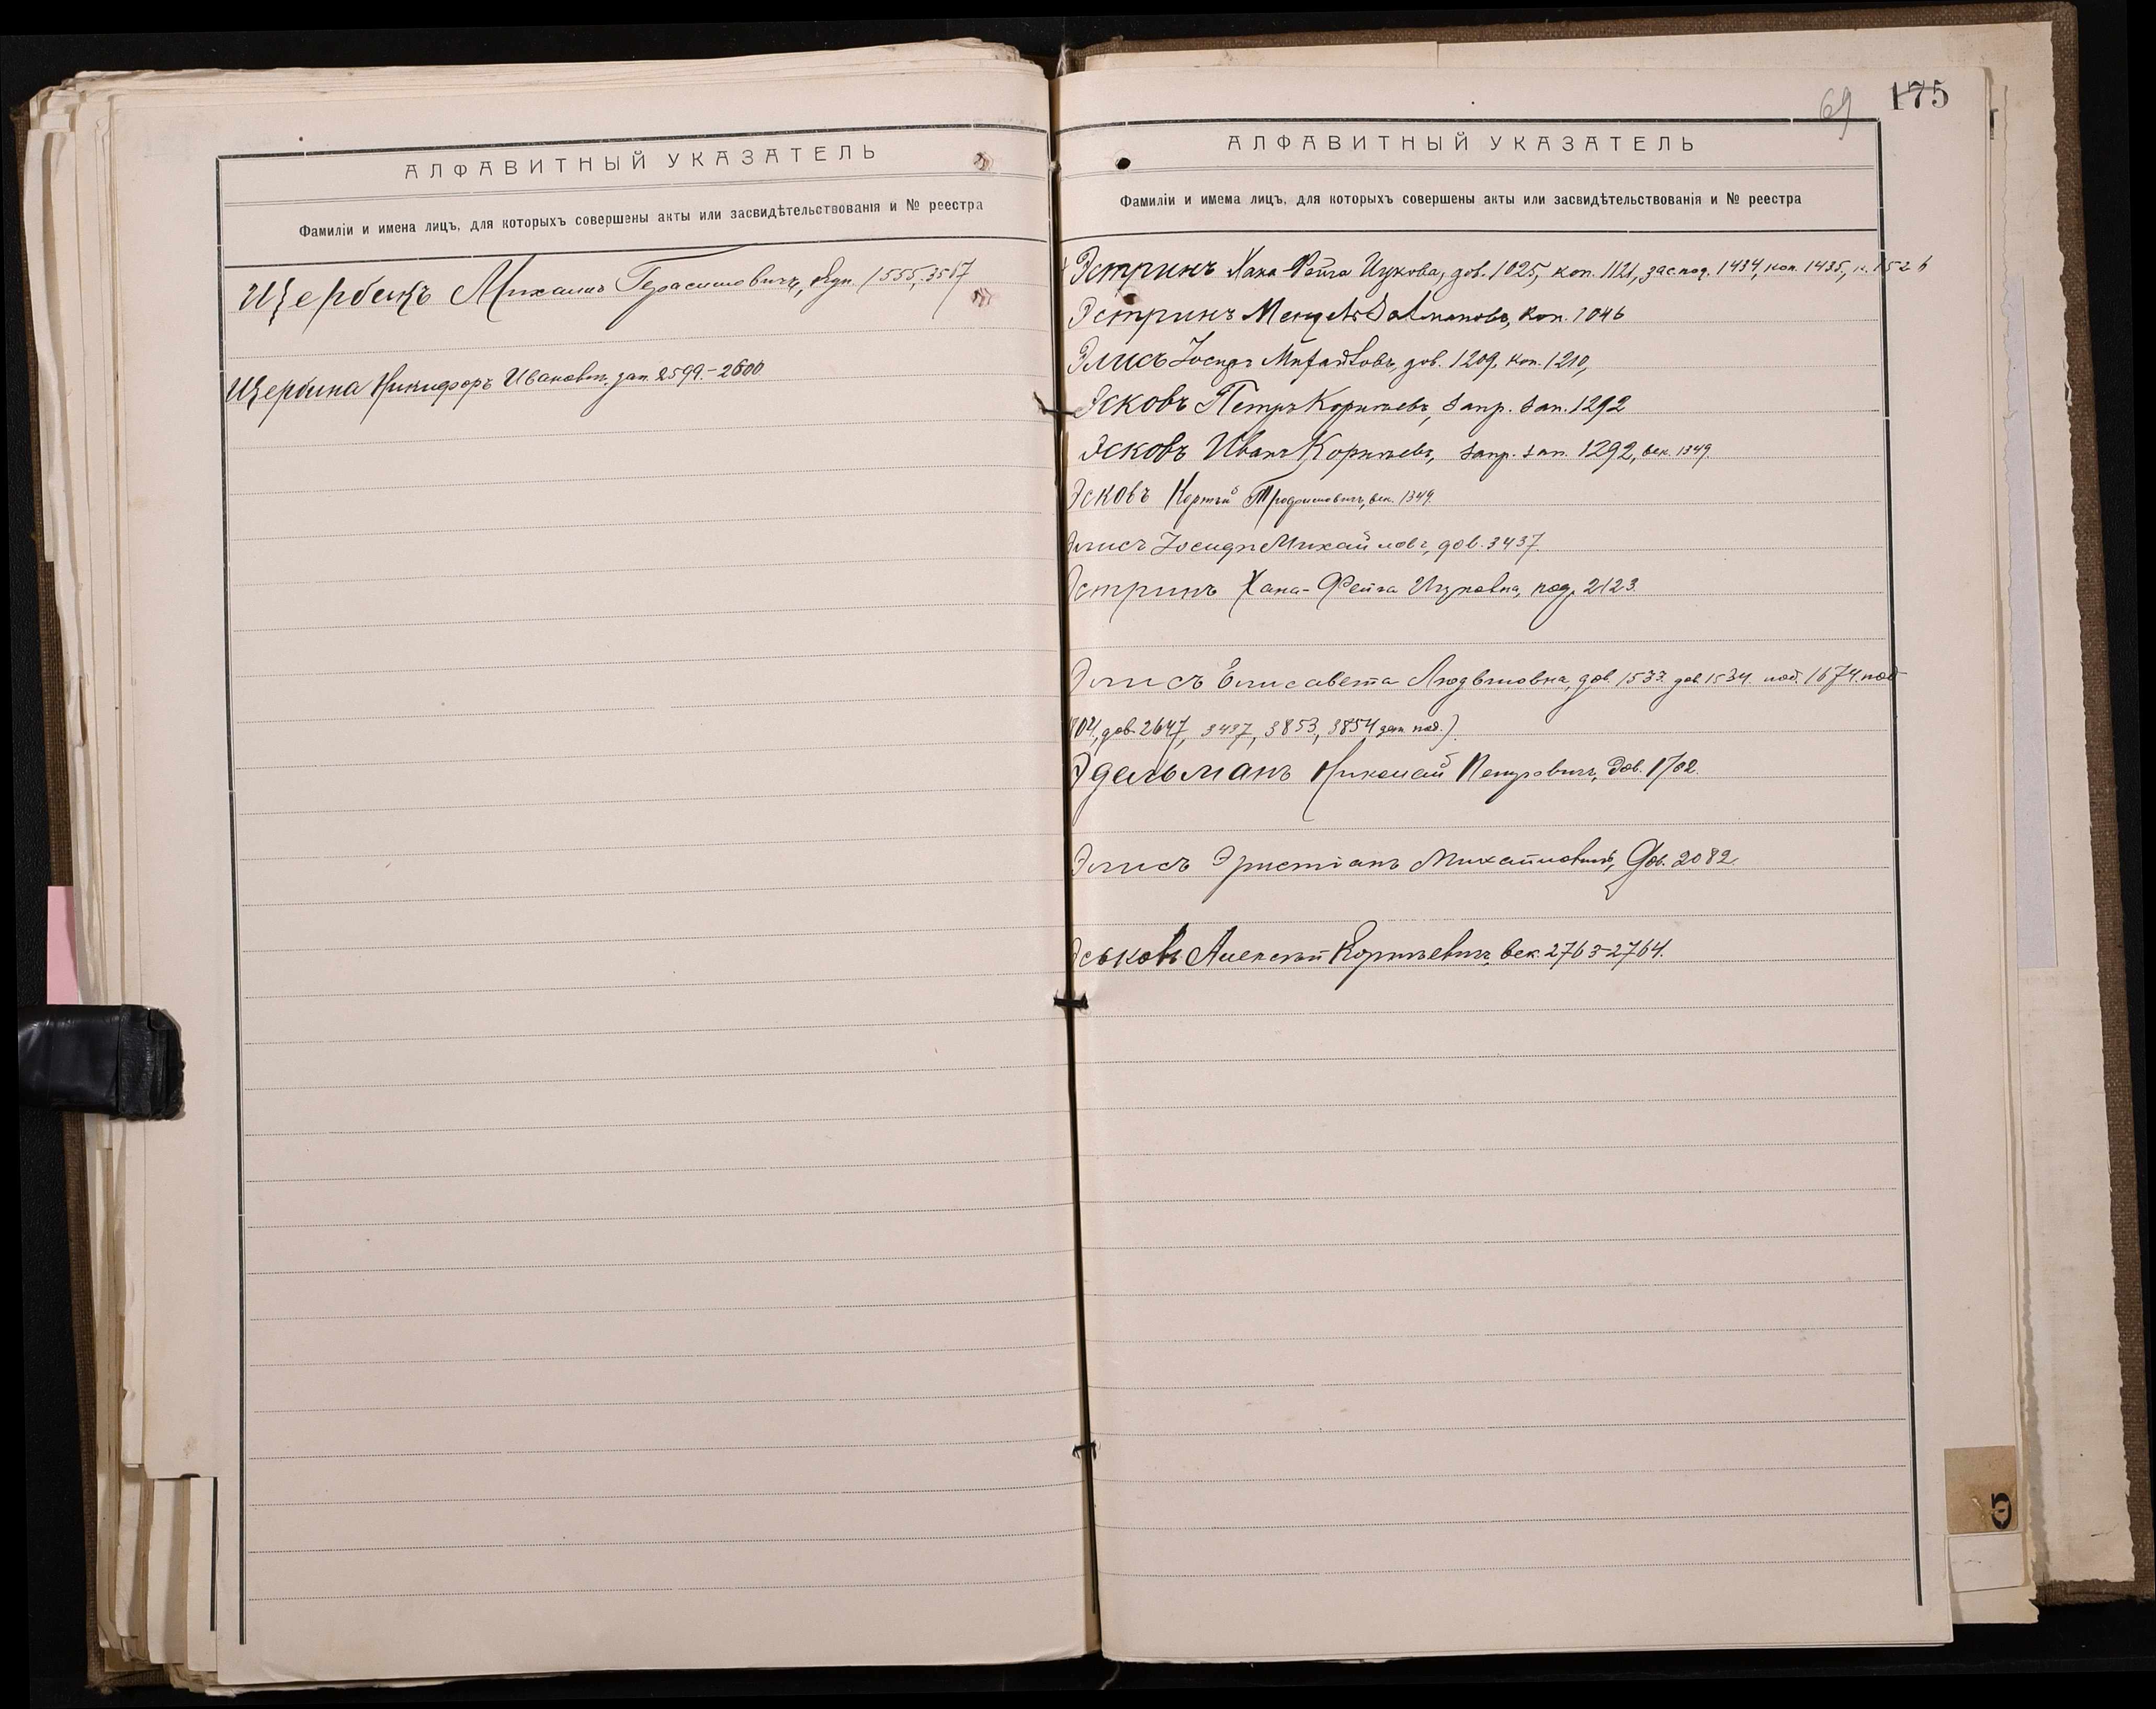 АЛФАВИТНЫЙ УКАЗАТЕЛЬ
Фамиліи и имена лицъ, для которыхъ совершены акты или засвидѣтельствованія и № реестра
Щербакъ Михаилъ Герасимовичъ, 1555, 3517
Щербина Никифоръ Ивановъ, зап. 2599.-2600
69 175
АЛФАВИТНЫЙ УКАЗАТЕЛЬ
Фамиліи и имена лицъ, для которыхъ совершены акты или засвидѣтельствованія и № реестра
Эстринъ Хана-Фейга Ицкова, дов. 1025, коп. 1121, зас под. 1434, коп. 1435, к. 1526
Эстринъ Мендель Залмановъ, коп. 1046
Элисъ Іосифъ Михайловъ, дов. 1209, коп. 1210,
Эсковъ Петръ Корнѣевъ, запр. зап. 1292
Эсковъ Иванъ Корнѣевъ, запр. зап. 1292, век. 1349.
Эсковъ Корнѣй Трофимовичъ, век. 1349.
Элисъ Іосифъ Михайловъ, дов. 3437.
Эстринъ Хана-Фейга Ицковна, под. 2123.
Элисъ Елисавета Людвиговна, дов. 1533. дов. 1534. под. 1674. под
804, дов. 2647, 3437, 3853, 3854 под.)
Эдельманъ Николай Петровичъ, Дов. 1702.
Элисъ Эристіанъ Михайловичъ, Дов. 2082.
Эськовъ Алексѣй Корнѣевичъ, век. 2763-2764.
Э